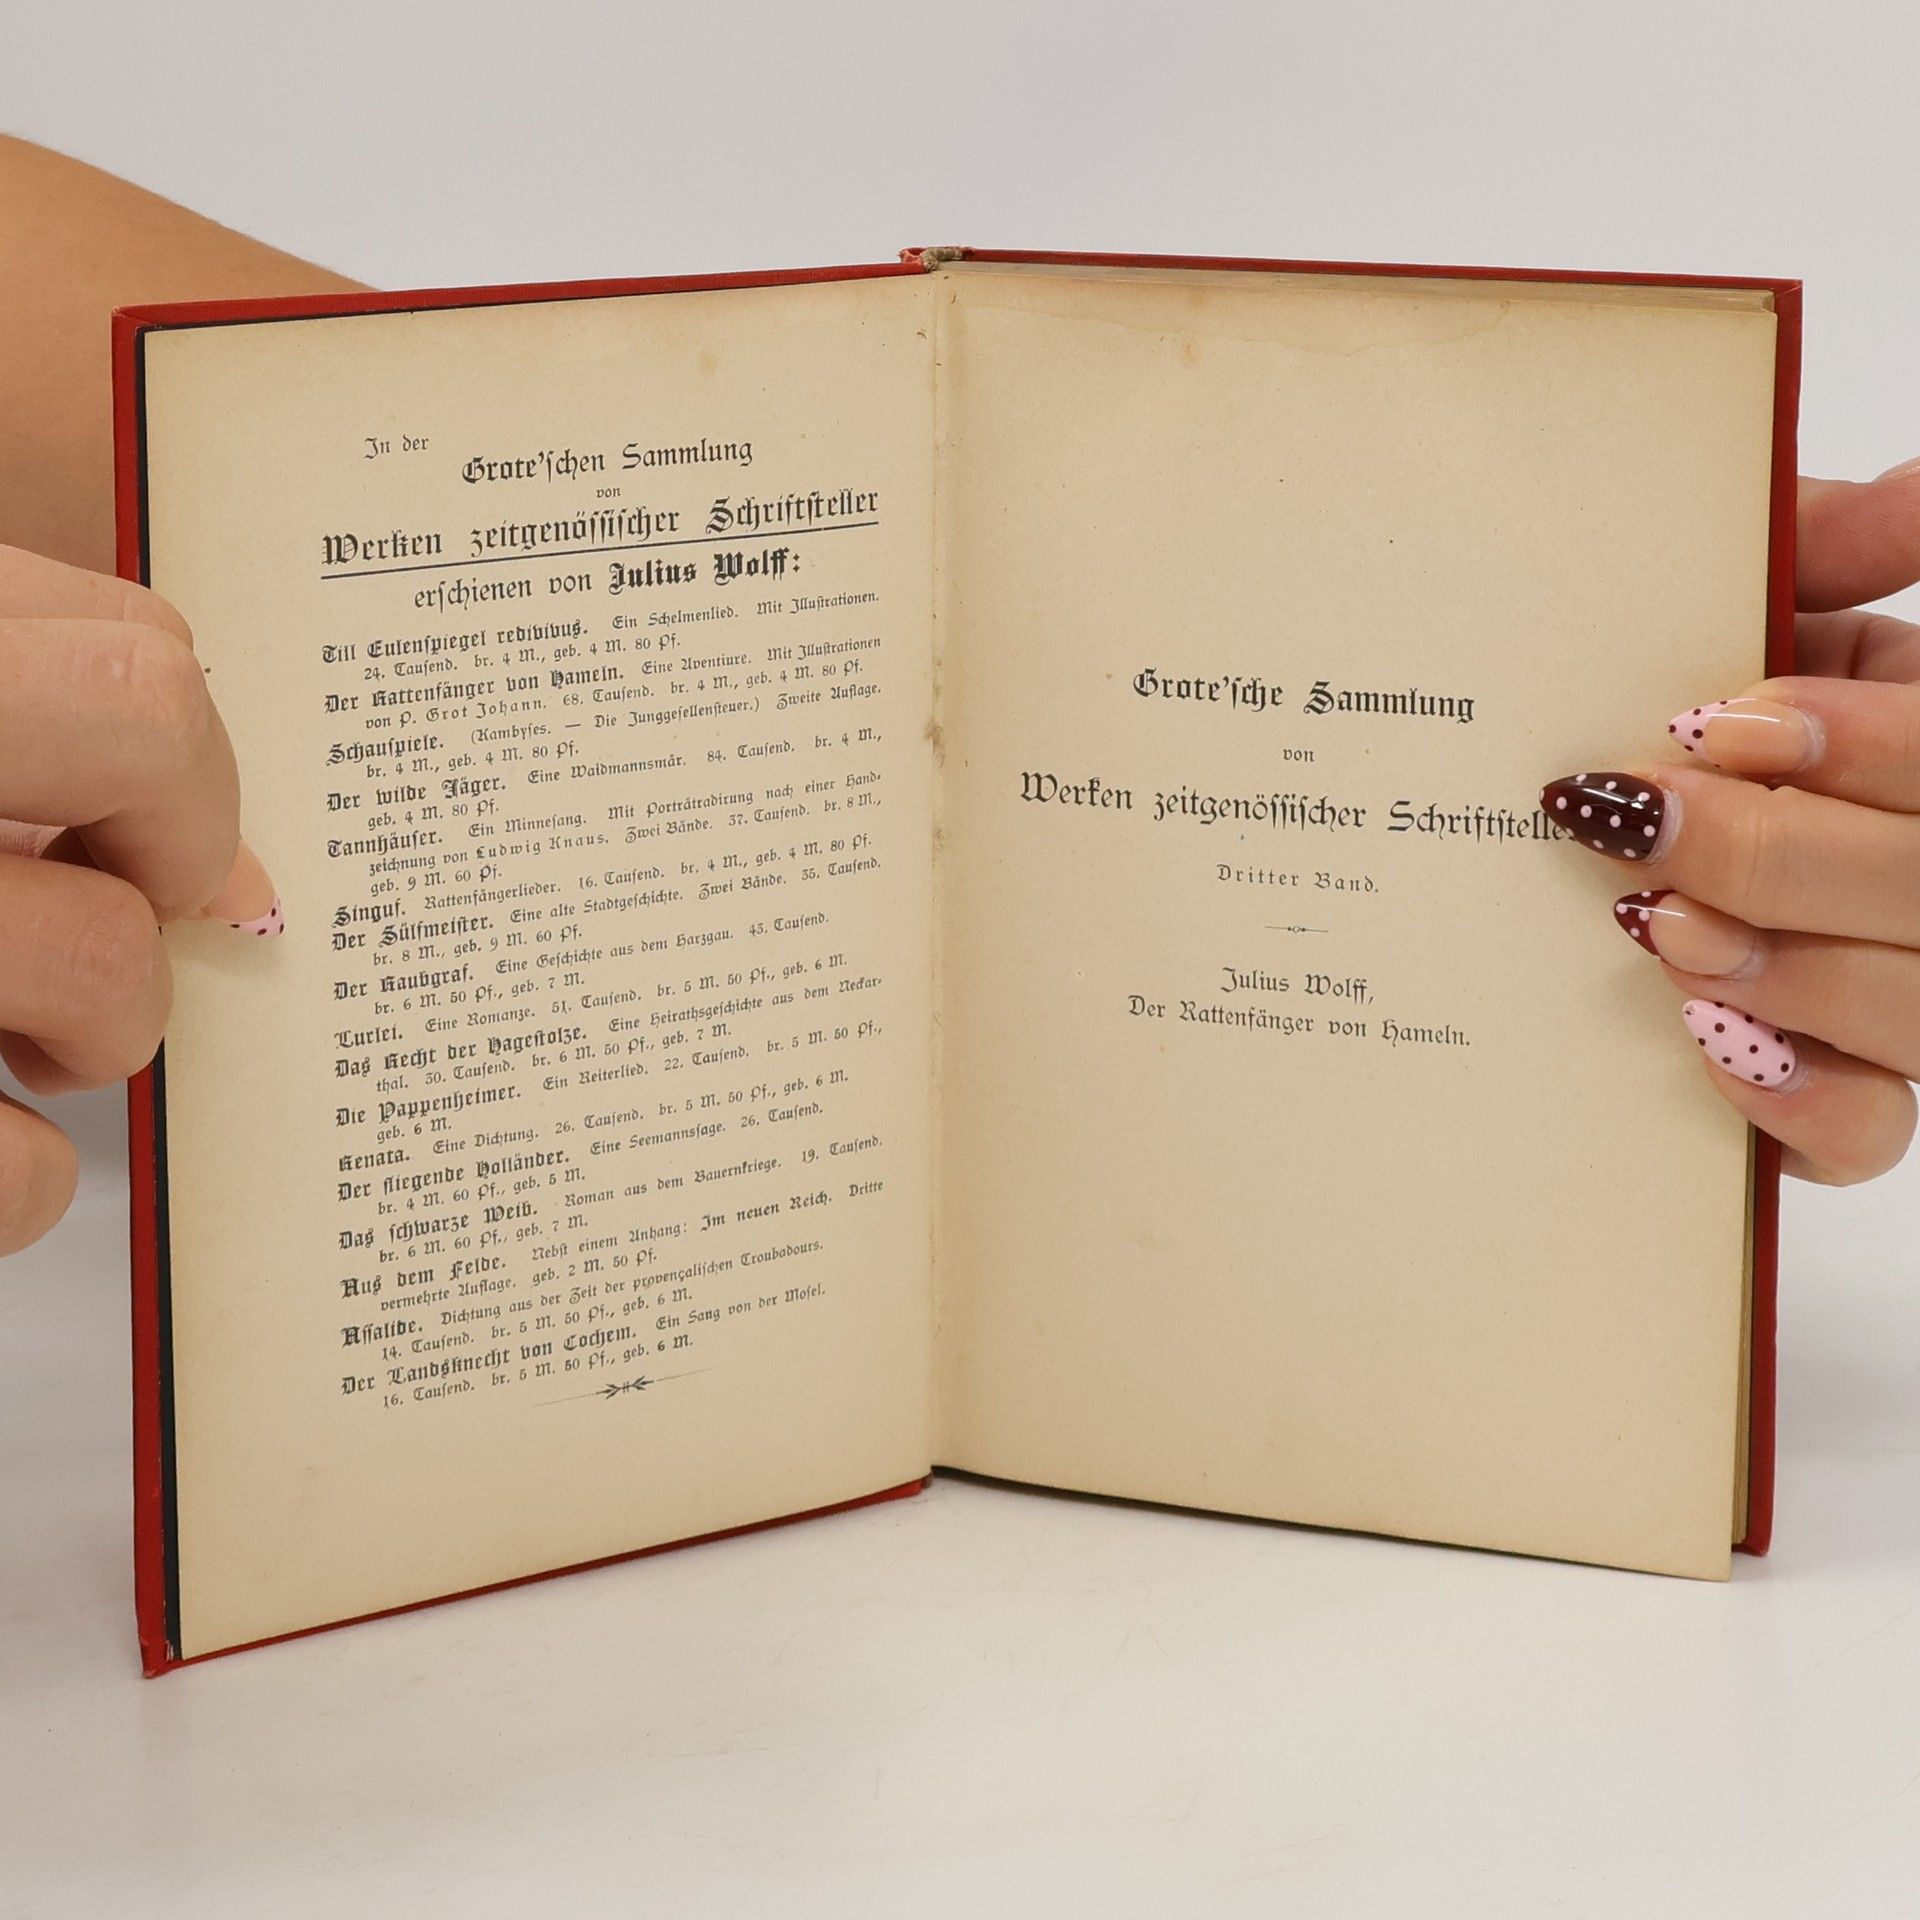 In der
Grote'ſchen Sammlung
von
Werken zeitgenöſſiſcher Schriftſteller
erſchienen von Julius Wolff:
Till Eulenſpiegel redivivus. Ein Schelmenlied. Mit Illuſtrationen.
24. Tauſend. br. 4 M., geb. 4 M. 80 Pf.
Der Rattenfänger von Hameln. Eine Aventiure. Mit Illuſtrationen
von P. Grot Johann. 68. Tauſend. br. 4 M., geb. 4 M. 80 Pf.
Schauſpiele. (Kambyſes. — Die Junggeſellenſteuer.) Zweite Auflage.
br. 4 M., geb. 4 M. 80 Pf.
Der wilde Jäger. Eine Waidmannsmär. 84. Tauſend. br. 4 M.,
geb. 4 M. 80 Pf.
Tannhäuſer. Ein Minneſang. Mit Porträtradirung nach einer Hand-
zeichnung von Ludwig Knaus. Zwei Bände. 37. Tauſend. br. 8 M.,
geb. 9 M. 60 Pf.
Singuf. Rattenfängerlieder. 16. Tauſend. br. 4 M., geb. 4 M. 80 Pf.
Der Sülfmeiſter. Eine alte Stadtgeſchichte. Zwei Bände. 35. Tauſend.
br. 8 M., geb. 9 M. 60 Pf.
Der Raubgraf. Eine Geſchichte aus dem Harzgau. 43. Tauſend.
br. 6 M. 50 Pf., geb. 7 M.
Lurlei. Eine Romanze. 51. Tauſend. br. 5 M. 50 Pf., geb. 6 M.
Das Recht der Hageſtolze. Eine Heirathsgeſchichte aus dem Neckar-
thal. 30. Tauſend. br. 6 M. 50 Pf., geb. 7 M.
Die Pappenheimer. Ein Reiterlied. 22. Tauſend. br. 5 M. 50 Pf.,
geb. 6 M.
Renata. Eine Dichtung. 26. Tauſend. br. 5 M. 50 Pf., geb. 6 M.
Der fliegende Holländer. Eine Seemannsſage. 26. Tauſend.
br. 4 M. 60 Pf., geb. 5 M.
Das ſchwarze Weib. Roman aus dem Bauernkriege. 19. Tauſend.
br. 6 M. 60 Pf., geb. 7 M.
Aus dem Felde. Nebſt einem Anhang: Im neuen Reich. Dritte
vermehrte Auflage. geb. 2 M. 50 Pf.
Aſſalide. Dichtung aus der Zeit der provençaliſchen Troubadours.
14. Tauſend. br. 5 M. 50 Pf., geb. 6 M.
Der Landsknecht von Cochem. Ein Sang von der Moſel.
16. Tauſend. br. 5 M. 50 Pf., geb. 6 M.
Grote'ſche Sammlung
von
Werken zeitgenöſſiſcher Schriftſtelle
Dritter Band.
Julius Wolff,
Der Rattenfänger von Hameln.